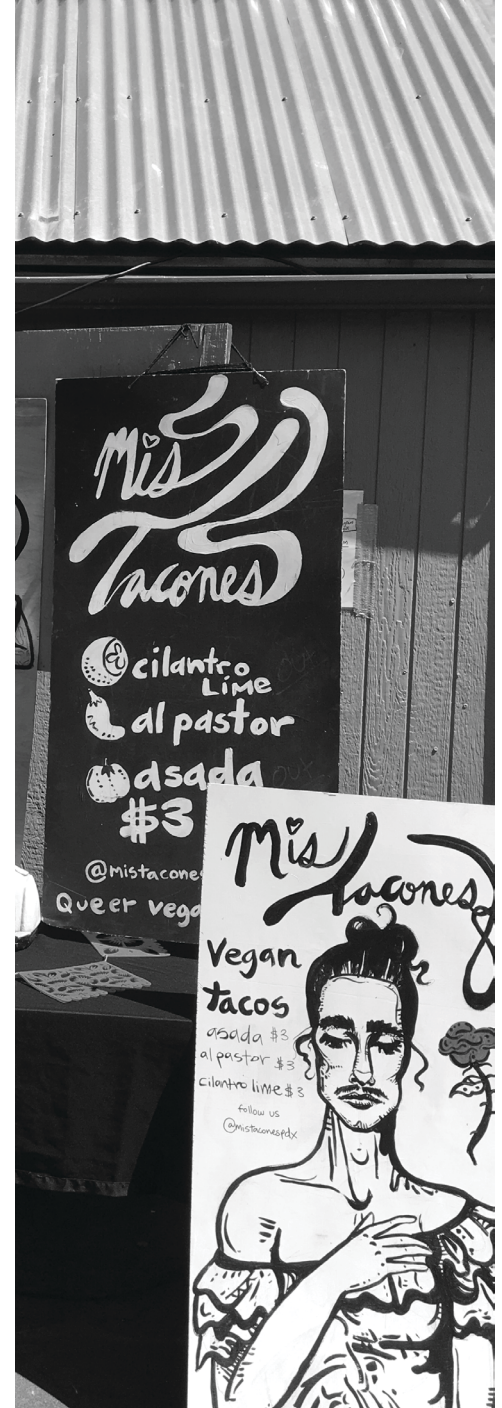 Mis
Tacones
cilantro
Lime
out
al pastor
asada
out
$3
@mistacones
Queer vega
Mis
Tacones
Vegan
tacos
asada $3
al pastor $3
cilantro lime $3
follow us
@mistaconespdx